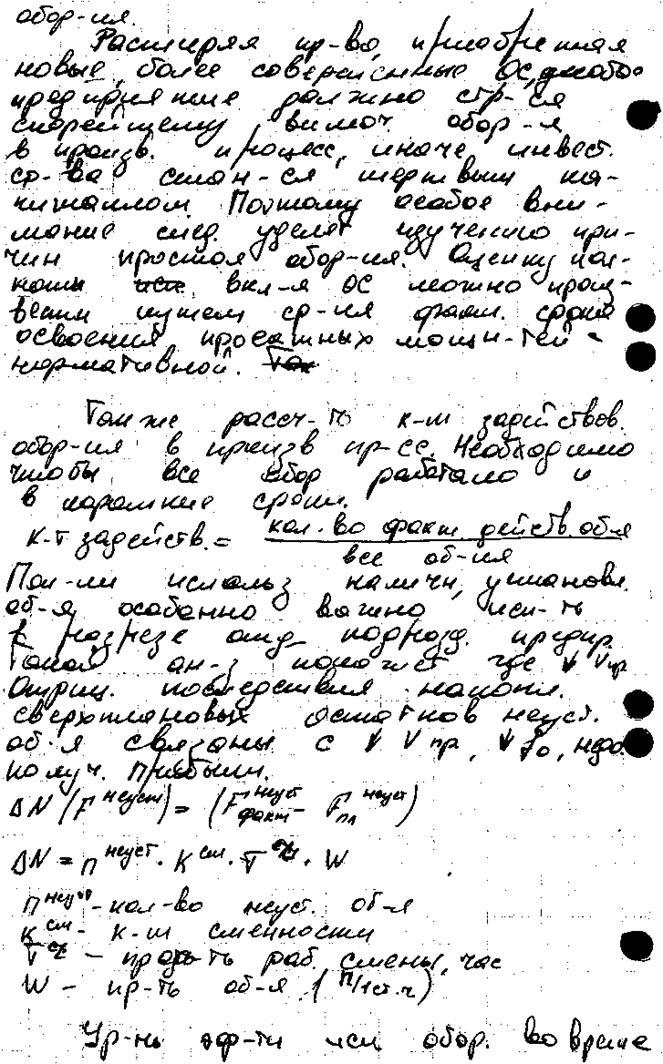 обор-ия.
Расширяя пр-во, приобретая
новые, более совершенные ОС,
предприятие должно стр-ся
скорейшему включ. обор-я
в произв. процесс, иначе инвест.
ср-ва стан-ся мертвым ка-
питалом. Поэтому особое вни-
мание след. уделят изучению при-
чин простоя обор-ия. Оценку пол-
ноты вкл-я ОС можно произ-
вести путем ср-ия факт. срока
освоения проектных мощн-тей с
нормативной. Так
Также рассч-ть к-т задействов.
обор-ия в произв пр-се. Необходимо
чтобы все обор работало и
в короткие сроки.
к-т задейств. = кол-во факт. действ. об-я
все об-ия
Пок-ли использ наличн, установл.
об-я особенно важно исп-ть
в разрезе отд подразд. предпр.
Такой ан-з покажет где ↓ Vпр
Отриц. последствия накопл.
сверхплановых остатков неуст.
об-я связаны с ↓ Vпр, ↓ fо, недо
получ. прибыли.
ΔN(F неуст) = (F неуст факт - F неуст пл)
ΔN = n неуст. · K см. · T · W
n неуст - кол-во неуст. об-я
K см - к-т сменности
T – прод-ть раб. смены, час
W – пр-ть об-я
Ур-нь эф-ти исп обор. во време